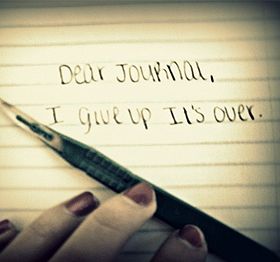 Dear Journal,
I give up It's over.